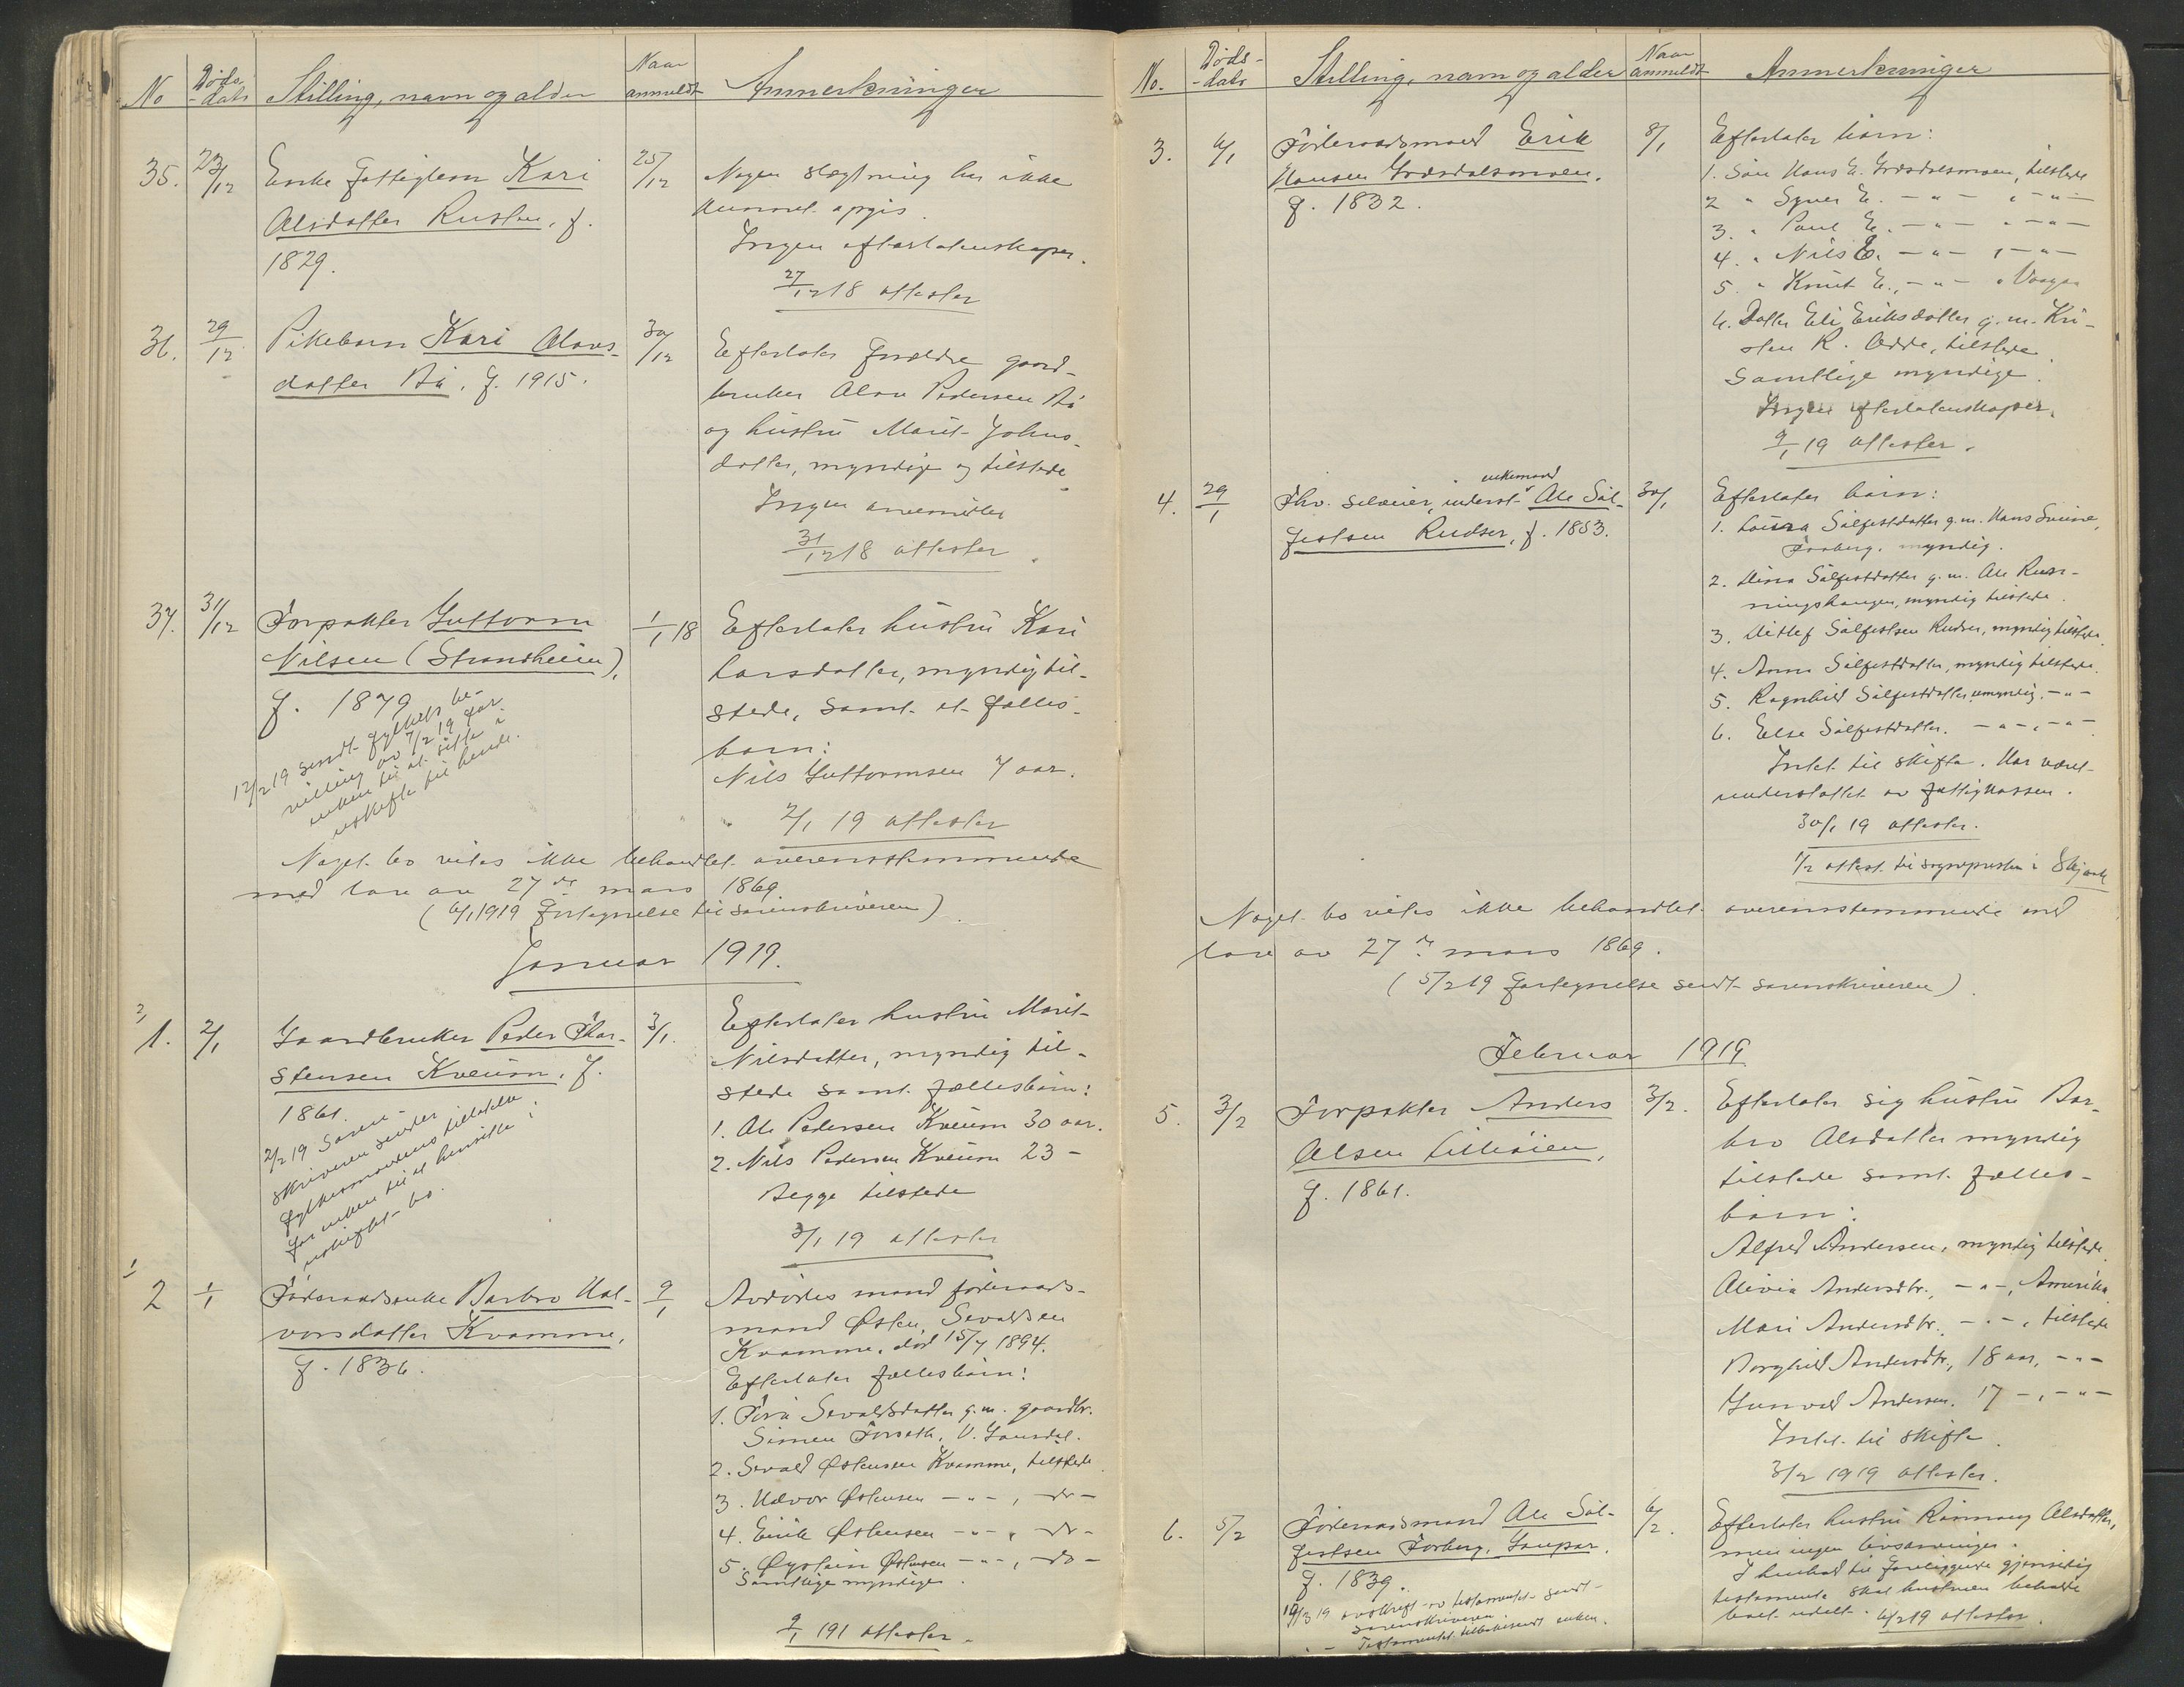 No
Døds-
-dato
Stilling, navn og alder
Naar
anmeldt
Anmerkninger
35.
23/12
Enke fattiglem Kari
Olsdatter Rusten, f.
1829.
25/12
Nogen slægtning har ikke
kunnet opgis.
Ingen efterlatenskaper.
27/12 18 attester
36.
29/12
Pikebarn Kari Olavs-
datter Bø. f. 1915.
30/12
Efterlater forældre gaard-
bruker Olav Pedersen Bø
og hustru Marit Johns-
datter, myndige og tilstede
Ingen arvemidler
31/12 18 attester.
37.
31/12
Forpakter Guttorm
Nilsen (Strandheim),
f. 1879
12/2 19 sendt fylkets be-
villing av 7/2 19 for
enken til at sitte i
uskifte til hende.
1/1 18
Efterlater hustru Kari
Larsdatter, myndig til-
stede, samt et fælles-
barn:
Nils Guttormsen 7 aar.
2/1 19 attester
Noget bo vites ikke behandlet overensstemmende
med lov av 27de mars 1869
(6/1 1919 fortegnelse til sorenskriveren).
Januar 1919.
2,
1.
2/1
Gaardbruker Peder Thor-
stensen Kveum. f.
1861.
2/2 19 Soren-
skriveren sender
fylkesmandens tillatelse
for enken til at hensitte i
uskiftet bo.
3/1.
Efterlater hustru Marit
Nilsdatter, myndig til-
stede samt fællesbarn:
1. Ole Pedersen Kveum 30 aar.
2. Nils Pedersen Kveum 23 –
Begge tilstede
3/1 19 attester
1
2
1/1
Føderaadsenke Barbro Hal-
vorsdatter Kvamme,
f. 1836.
9/1
Avdødes mand føderaads-
mand Østen Sevaldsen
Kvamme, død 15/7 1894.
Efterlater fællesbarn:
1. Sevaldsdatter g. m. gaardbr.
Simen Forseth, V. Gausdal.
2. Sevald Østensen Kvamme, tilstede
3. Halvor Østensen – " – , – do –
4. Erik Østensen – " – , – do –
5. Øystein Østensen – " – , – do –
Samtlige myndige.
9/1 191 attester.
No.
Døds-
-dato
Stilling, navn og alder
Naar
anmeldt
Anmerkninger
3.
6/1
Føderaadsmand Erik
Hansen Grøsdalsmoen.
f. 1832.
8/1
Efterlater barn:
1. Søn Hans E. Grøsdalsmoen, tilstede
2 " Syver E. – " – , – " –
3. " Paul E. – " – , – " –
4. " Nils E. – " – , – " –
5. " Knut E., – " – , Vaage
6. Datter Eli Eriksdatter g. m. Kri-
sten R. Odde, tilstede.
Samtlige myndige.
Ingen efterlatenskaper.
9/1 19 attester.
4.
29/1
enkemand
Fhv. selveier, inderst Ole Søl-
festsen Rudser, f. 1853.
30/1
Efterlater barn:
1. Laura Sølfestdatter g. m. Hans
Faaberg. myndig.
2. Dina Sølfestdatter g. m. Ole Run-
ningshaugen, myndig tilstede.
3. Ditlef Sølfestsen Rudser, myndig tilstede
4. Anna Sølfestdatter, myndig tilstede.
5. Ragnhild Sølfestdatter, umyndig. – " –
6. Else Sølfestdatter. – " – , – " –
Intet til skifte. Har været
understøttet av fattigkassen.
30/1 19 attester.
1/2 attest til sognepresten i Skjaak
Noget bo vites ikke behandlet overensstemmende med
lov av 27de mars 1869.
(5/2 19 fortegnelse sendt sorenskriveren).
Februar 1919
5.
3/2
Forpakter Anders
Olsen Lillesøien,
f. 1861.
3/2.
Efterlater sig hustru Bar-
bro Olsdatter myndig
tilstede samt fælles-
barn:
Alfred Andersen, myndig tilstede.
Olivia Andersdtr., – " –, Amerika.
Mari Andersdtr., – " –, tilstede
Borghild Andersdtr., 18 aar, – " –
Gunvald Andersen. 17 – , – " –
Intet til skifte.
3/2 1919 attester.
6.
5/2
Føderaadsmand Ole Søl-
festsen Forberg, Gaupar.
f. 1839.
10/3 19 avskrift av testamentet sendt
sorenskriveren
" – Testamentet tilbakesendt enken.
6/2.
Efterlater hustru Rønnaug Olsdatter,
men ingen livsarvinger.
I henhold til foreliggende gjensidig
testamente skal hustruen beholde
boet udelt. 6/2 19 attester.